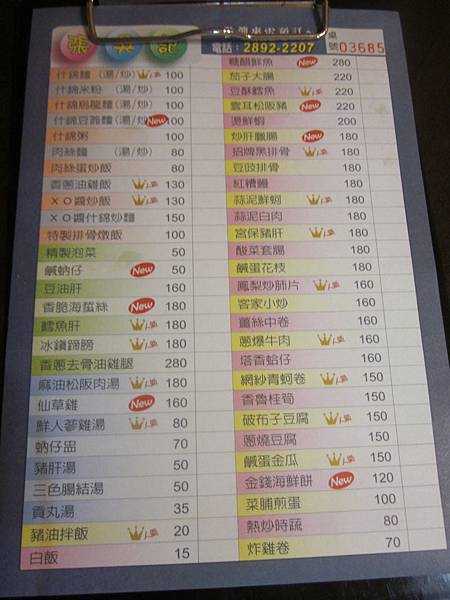 電話：2892-2207
桌號 03685
什錦麵（湯/炒） 100
什錦米粉（湯/炒） 100
什錦烏龍麵（湯/炒） 100
什錦豆簽麵（湯/炒） New 100
什錦粥 100
肉絲麵（湯/炒） 80
肉絲蛋炒飯 80
香蔥油雞飯 130
ＸＯ醬炒飯 130
ＸＯ醬什錦炒麵 150
特製排骨燉飯 100
精製泡菜 50
鹹蚋仔 New 50
豆油肝 160
香脆海蜇絲 New 180
鱈魚肝 180
冰鎮蹄膀 180
香蔥去骨油雞腿 280
麻油松阪肉湯 180
仙草雞 New 160
鮮人蔘雞湯 80
蚋仔盅 70
豬肝湯 50
三色腸結湯 50
貢丸湯 35
豬油拌飯 20
白飯 15
糖醋鮮魚 New 280
茄子大腸 220
豆酥鱈魚 220
雲耳松阪豬 New 220
燙鮮蝦 200
炒肝臘腸 New 180
招牌黑排骨 180
豆豉排骨 180
紅糟鰻 180
蒜泥鮮蚵 180
蒜泥白肉 180
宮保豬肝 180
酸菜套腸 180
鹹蛋花枝 180
鳳梨炒肺片 160
客家小炒 160
薑絲中卷 160
蔥爆牛肉 160
塔香蛤仔 160
網紗青蚵卷 150
香魯桂筍 150
破布子豆腐 150
蔥燒豆腐 150
鹹蛋金瓜 150
金錢海鮮餅 New 120
菜脯煎蛋 100
熱炒時蔬 80
炸雞卷 70